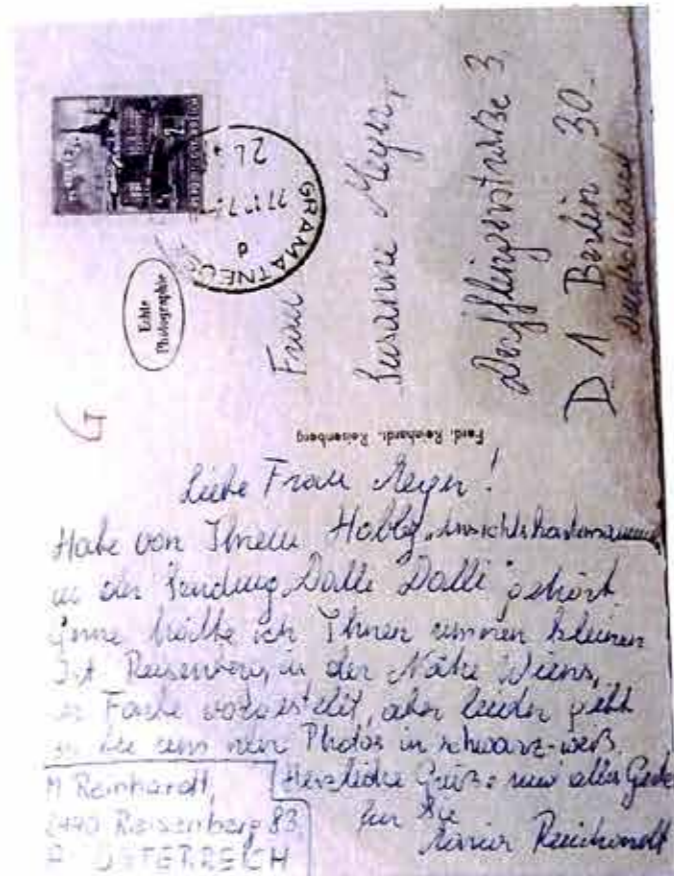 GRAMATNEU
d
Echte
Photographie
Frau
Susanne Meyer,
Derfflingerstraße 3,
D 1 Berlin 30.
Deutschland
Ferd. Reinhardt, Reisenberg
Liebe Frau Meyer!
Habe von Ihrem Hobby „Ansichtskartensammeln
in der Sendung „Dalli Dalli" gehört.
Gerne hätte ich Ihnen unseren kleinen
Ort Reisenberg, in der Nähe Wiens,
in Farbe vorgestellt, aber leider gibt
es bei uns nur Photos in schwarz-weiß.
Herzliche Grüße und alles Gute
für Sie
Reinhardt
M. Reinhardt,
2440 Reisenberg 83,
A- ÖSTERREICH